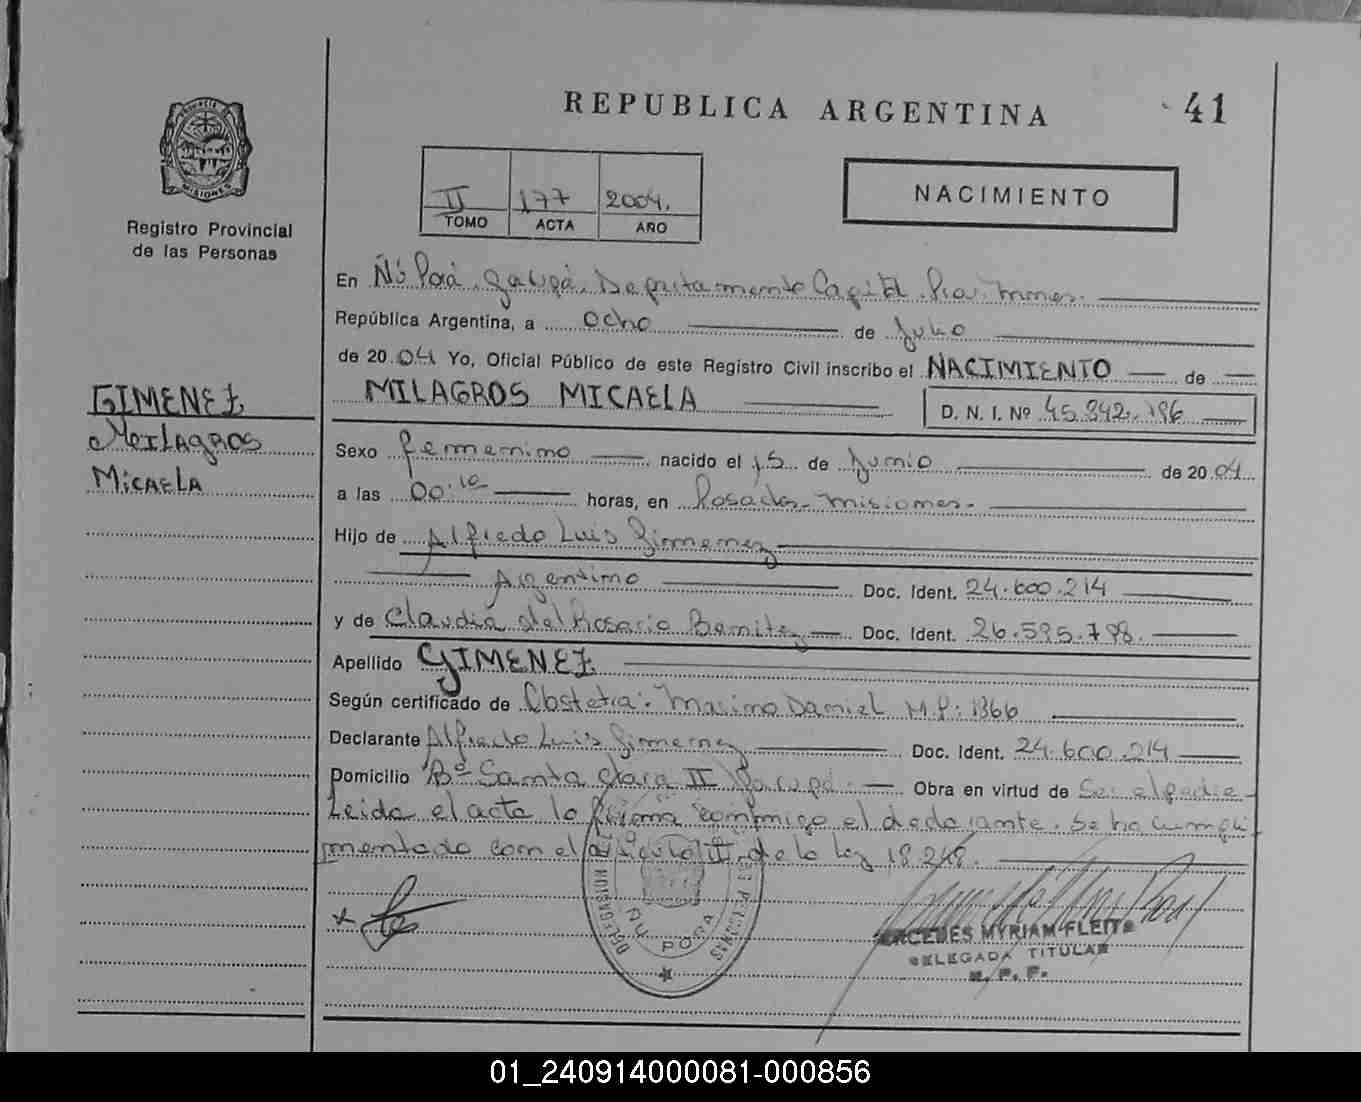 REPUBLICA ARGENTINA
41
PROVINCIA
MISIONES
Registro Provincial
de las Personas
II 177 2004.
TOMO ACTA AÑO
NACIMIENTO
En Ñú Porá, Garupá, Departamento Capital. Pcia. Mnes.
República Argentina, a ocho de Julio
de 2004 Yo, Oficial Público de este Registro Civil inscribo el NACIMIENTO de
MILAGROS MICAELA
D. N. I. Nº 45.842.796
GIMENEZ
MILAGROS
MICAELA
Sexo femenino nacido el 15 de Junio de 2004
a las 00:10 horas, en Posadas-Misiones-
Hijo de Alfredo Luis Gimenez
Argentino Doc. Ident. 24.600.214
y de Claudia del Rosario Benitez Doc. Ident. 26.595.798.
Apellido GIMENEZ
Según certificado de Obstetra: Maximo Daniel M.P: 1366
Declarante Alfredo Luis Gimenez Doc. Ident. 24.600.214
Domicilio Bº Santa Clara II Garupá. Obra en virtud de Ser el padre-
Leida el acta la firma conmigo el declarante. Se ha cumpli
mentado con el articulo de la Ley 18.248.
DELEGACION
ÑU PORA
DE LAS PERSONAS
MERCEDES MYRIAM FLEITA
DELEGADA TITULAR
R. P. P.
01_240914000081-000856